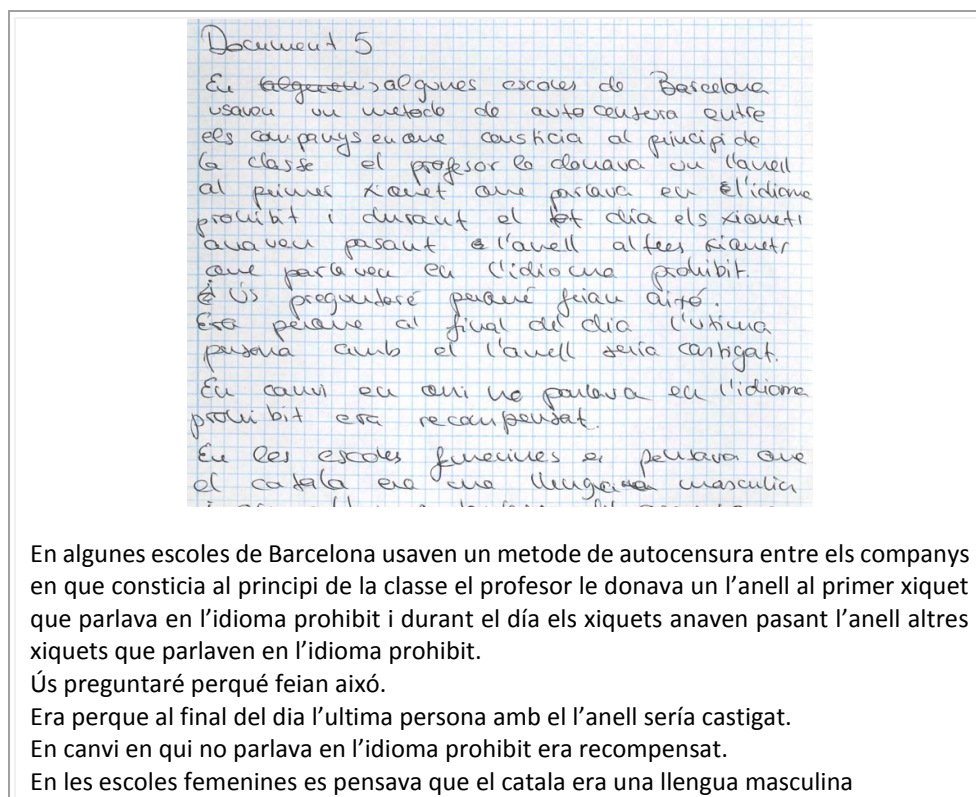 Document 5
En algunes escoles de Barcelona
usaven un metode de auto censura entre
els companys en que consticia al principi de
la classe el profesor le donava un l'anell
al primer xiquet que parlava en l'idioma
prohibit i durant el dia els xiquets
anaven pasant l'anell altres xiquets
que parlaven en l'idioma prohibit.
Ús preguntaré perqué feian aixó.
Era perque al final del dia l'ultima
persona amb el l'anell sería castigat.
En canvi en qui no parlava en l'idioma
prohibit era recompensat.
En les escoles femenines es pensava que
el catala era una llengua masculin
En algunes escoles de Barcelona usaven un metode de autocensura entre els companys
en que consticia al principi de la classe el profesor le donava un l’anell al primer xiquet
que parlava en l’idioma prohibit i durant el día els xiquets anaven pasant l’anell altres
xiquets que parlaven en l’idioma prohibit.
Ús preguntaré perqué feian aixó.
Era perque al final del dia l’ultima persona amb el l’anell sería castigat.
En canvi en qui no parlava en l’idioma prohibit era recompensat.
En les escoles femenines es pensava que el catala era una llengua masculina